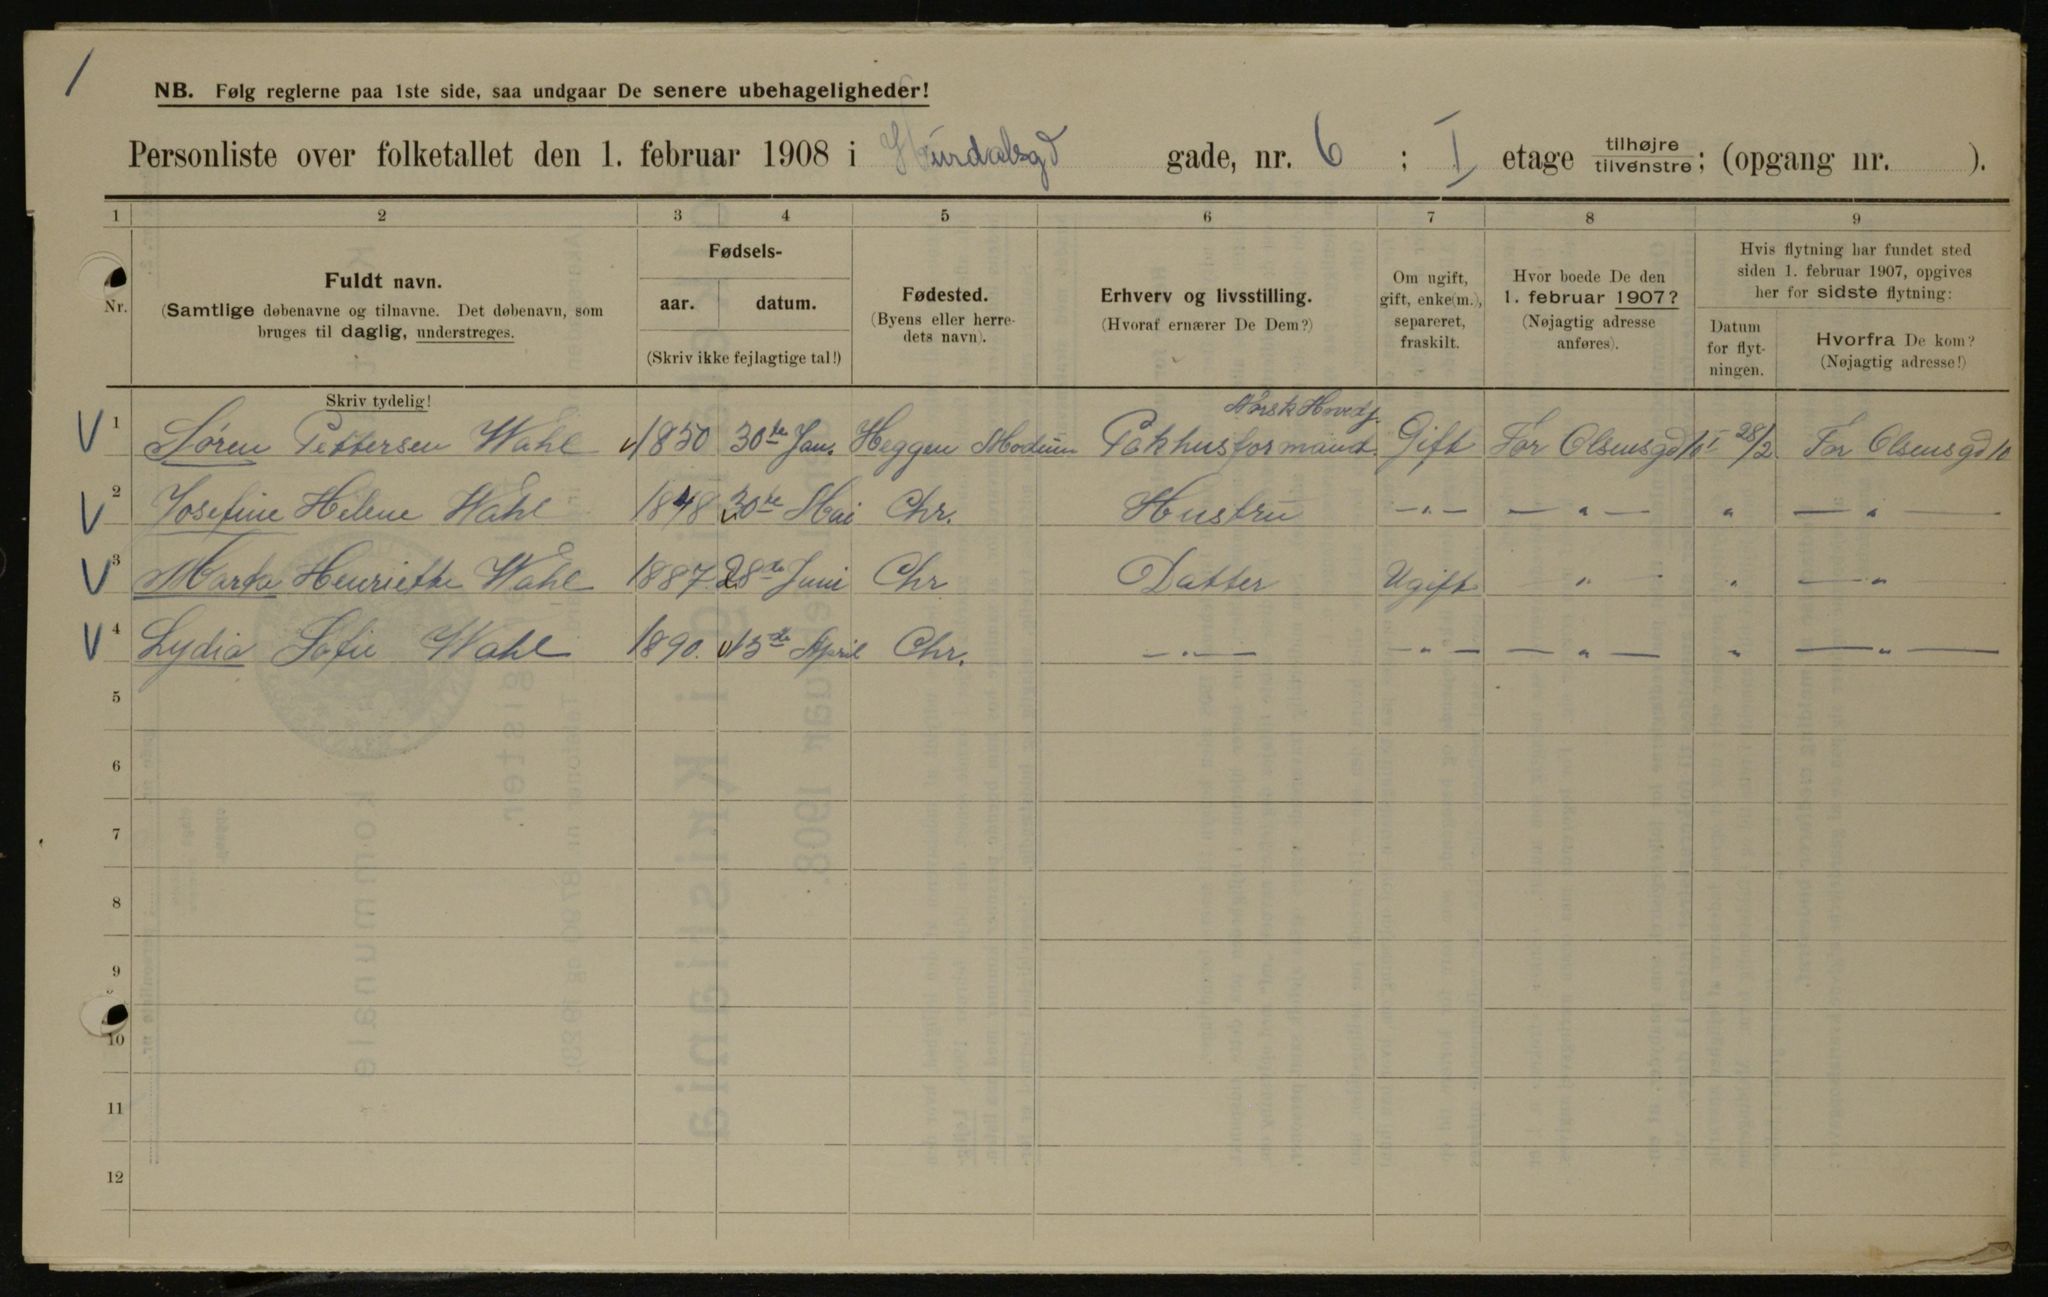 1
NB. Følg reglerne paa 1ste side, saa undgaar De senere ubehageligheder!
Personliste over folketallet den 1. februar 1908 i Hurdalsgd gade, nr. 6 ; I etage tilhøjre tilvenstre; (opgang nr. ).
1 2 3 4 5 6 7 8 9
Nr.
Fuldt navn.
(Samtlige døbenavne og tilnavne. Det døbenavn, som
bruges til daglig, understreges.
Skriv tydelig!
Fødsels-
aar. datum.
(Skriv ikke fejlagtige tal!)
Fødested.
(Byens eller herre-
dets navn).
Erhverv og livsstilling.
(Hvoraf ernærer De Dem?)
Om ugift,
gift, enke(m.),
separeret,
fraskilt.
Hvor boede De den
1. februar 1907?
(Nøjagtig adresse
anføres).
Hvis flytning har fundet sted
siden 1. februar 1907, opgives
her for sidste flytning:
Datum
for flyt-
ningen.
Hvorfra De kom?
(Nøjagtig adresse!)
Norsk Hovedj.
V 1 Søren Pettersen Wahl 1850 30te Jan. Heggen Modum Pakhusformand. Gift For Olsensgd 10 I 28/2 For Olsensgd 10
V 2 Josefine Helene Wahl 1848 30te Mai Chr. Hustru — " — — " — " — " —
V 3 Marta Henriette Wahl 1887 28de Juni Chr Datter Ugift " " — " —
V 4 Lydia Sofie Wahl 1890. 13de April Chr. — " — — " — — " — " — " —
5
6
7
8
9
10
11
12